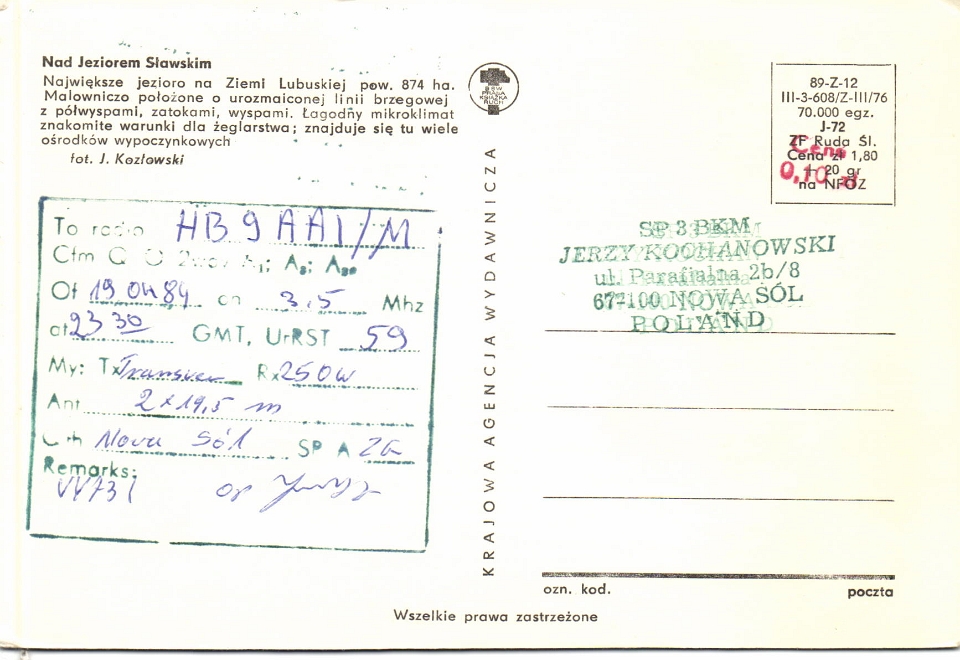 Nad Jeziorem Sławskim
Największe jezioro na Ziemi Lubuskiej pow. 874 ha.
Malowniczo położone o urozmaiconej linii brzegowej
z półwyspami, zatokami, wyspami. Łagodny mikroklimat
znakomite warunki dla żeglarstwa; znajduje się tu wiele
ośrodków wypoczynkowych
fot. J. Kozłowski
To radio HB9AAI/M
Cfm Q O 2way A1; A3; A3a
Of 19 04 84 on 3,5 Mhz
at 23 30 GMT, Ur RST 59
My: Tx Transver Rx 250W
Ant 2x19,5 m
Qth Nowa Sól SP A ZG
Remarks:
VY 73!
op
BSW
PRASA
KSIĄŻKA
RUCH
KRAJOWA AGENCJA WYDAWNICZA
89-Z-12
III-3-608/Z-III/76
70.000 egz.
J-72
ZF Ruda Śl.
Cena zł 1,80
+ 20 gr
na NFOZ
Cena
0,10 zł
SP 3 BKM
JERZY KOCHANOWSKI
ul. Parafialna 2b/8
67-100 NOWA SÓL
POLAND
ozn. kod. poczta
Wszelkie prawa zastrzeżone